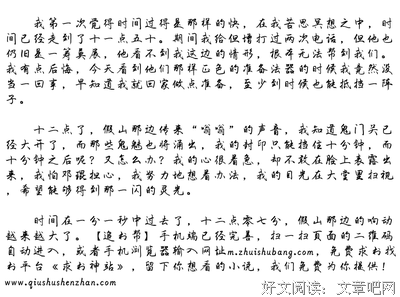 我第一次觉得时间过得是那样的快，在我苦思冥想之中，时
间已经走到了十一点五十。期间我给但懵打过两次电话，但他也
仍旧是一筹莫展，他看不到我这边的情形，根本无法帮到我们。
我有点后悔，今天看到他们那样正色的准备法器的时候我竟然没
当一回事，早知道我就回家做点准备，至少到时候也能抵挡一阵
子。
十二点了，假山那边传来“嗡嗡”的声音，我知道鬼门关已
经大开了，而那些鬼魅也将涌出，我的封印只能挡住十分钟，而
十分钟之后呢？又怎么办？我的心很着急，却不敢在脸上表露出
来，我怕邓琨担心，我努力地想着办法，我的目光在大堂里扫视
，希望能够得到那一闪的灵光。
时间在一分一秒中过去了，十二点零七分，假山那边的响动
越来越大了。【追书帮】手机端已经完善，扫一扫页面的二维码
自动进入，或者手机浏览器输入网址m.zhuishubang.com，免费求书找
书平台《求书神站》，留下你想看的小说，我们免费为你提供！
www.qiushushenzhan.com
好文阅读：文章吧网